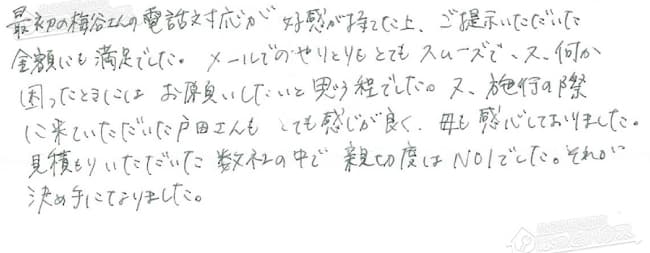 最初の梅谷さんの電話対応が好感が持てた上、ご提示いただいた
金額にも満足でした。メールでのやりとりもとてもスムーズで、又、何か
困ったときにはお願いしたいと思う程でした。又、施行の際
に来ていただいた戸田さんもとても感じが良く、母も感心しておりました。
見積もりいただいた数社の中で親切度はNO1でした。それが
決め手になりました。